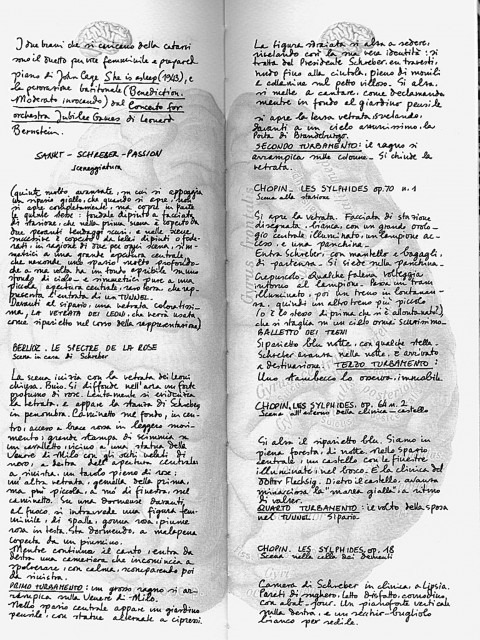 I due brani che si curano della catarsi
sono il duetto per voce femminile e prepared
piano di John Cage She is asleep (1943), e
la perorazione baritonale (Benediction.
Moderato invocando) dal Concerto for
orchestra Jubilee Games di Leonard
Bernstein.
SANKT - SCHREBER - PASSION
sceneggiatura
(quinte molto avanzate, in cui si appoggia
un sipario giallo, che quando si apre, non
si apre completamente, ma copre in parte
le quinte stesse: fondale dipinto a facciata
di stazione, che nella prima scena è coperto da
due pesanti tendaggi scuri, e nelle scene
successive è coperto da telei dipinti o fode-
rati, in ragione di due per ogni scena, sim-
metrici a una grande apertura centrale,
che nasconde uno spazio molto profondo,
che a sua volta ha un fondo apribile muni-
to di cielo - e simmetrica pure a una
piccola apertura centrale, verso terra, che rap-
presenta l'entrata di un TUNNEL.
Davanti al sipario, una vetrata coloratissi-
ma, LA VETRATA DEI LEONI, che verrà usata
come siparietto nel corso della rappresentazione)
BERLIOZ. LE SPECTRE DE LA ROSE
Scena in casa di Schreber
La scena inizia con la vetrata dei Leoni
chiusa. Buio. Si diffonde nell'aria un forte
profumo di rose. Lentamente si evidenzia
la vetrata, e appare la stanza di Schreber,
in penombra. Caminetto nel fondo, in cen-
tro, acceso a brace rossa in leggero movi-
mento; grande stampa di scimmia su
un cavalletto, vicino a una statua della
Venere di Milo con gli occhi velati di
nero, a destra dell'apertura centrale;
a sinistra, un tavolo pieno di rose;
un'altra vetrata, gemella della prima,
ma più piccola, a mo' di finestra, nel
caminetto. Su una dormeuse davanti
al fuoco, si intravede una figura fem-
minile, di spalle, gonna rosa, piume
rosa in testa. Sta dormendo, a malapena
coperta da un piumino.
Mentre continua il canto, entra da
destra una cameriera che incomincia a
spolverare, con calma, scomparendo poi
da sinistra.
PRIMO TURBAMENTO: un grosso ragno si ar-
rampica sulla Venere di Milo.
Nello spazio centrale appare un giardino
pensile, con statue alternate a cipressi.
La figura sdraiata si alza a sedere,
rivelando così la sua vera identità: si
tratta del Presidente Schreber, en travesti,
nudo fino alla cintola, pieno di monili
e collanine sul petto villoso. Si alza,
si mette a cantare, come declamando,
mentre in fondo al giardino pensile
si apre la terza vetrata, svelando,
davanti a un cielo azzurrissimo, la
Porta di Brandeburgo.
SECONDO TURBAMENTO: il ragno si
arrampica sulle colonne. Si chiude la
vetrata.
CHOPIN. LES SYLPHIDES op.70 n.1
Scena alla stazione
Si apre la vetrata. Facciata di stazione
disegnata, bianca, con un grande orolo-
gio centrale illuminato, un lampione ac-
ceso, e una panchina.
Entra Schreber, con mantello e bagagli,
di partenza. Si siede sulla panchina.
Crepuscolo. Qualche falena volteggia
intorno al lampione. Passa un tram
illuminato, poi un treno in lontanan-
za, quindi un altro treno più piccolo
(o è lo stesso di prima che si è allontanato?)
che si staglia in un cielo ormai scurissimo.
BALLETTO DEI TRENI
Siparietto blu notte, con qualche stella.
Schreber avanza, nella notte, è arrivato
a destinazione. TERZO TURBAMENTO:
Uno stambecco lo osserva, immobile.
CHOPIN. LES SYLPHIDES, op.64 n.2
Scena all'esterno della clinica-castello
Si alza il siparietto blu. Siamo in
piena foresta, di notte. Nello spazio
centrale, un castello, con le finestre
illuminate, nel bosco. È la clinica del
dottor Flechsig. Dietro il castello, avanza
minacciosa la "marea gialla", a ritmo
di valzer.
QUARTO TURBAMENTO: il volto della sposa
nel TUNNEL. Sipario.
CHOPIN. LES SYLPHIDES, op.18
Scena nella cella dei dementi
Camera di Schreber in clinica, a Lipsia.
Pareti di sughero, letto disfatto, comodino,
con abat-jour. Un pianoforte verticale
sulla destra, e un secchio-bugliolo
bianco per sedile.